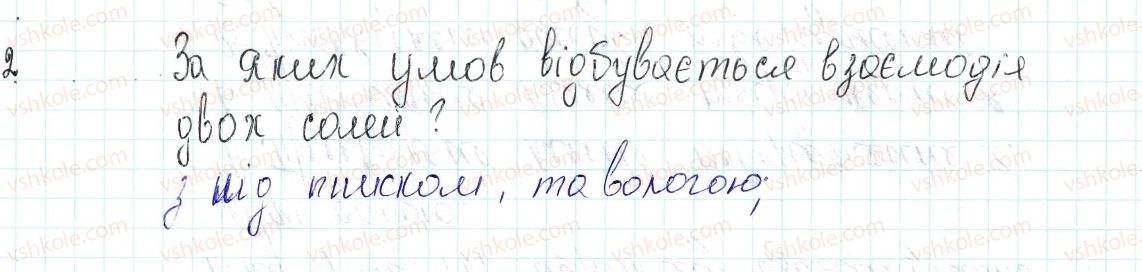 2 За яких умов відбувається взаємодія
двох солей?
з під тиском, та вологою;